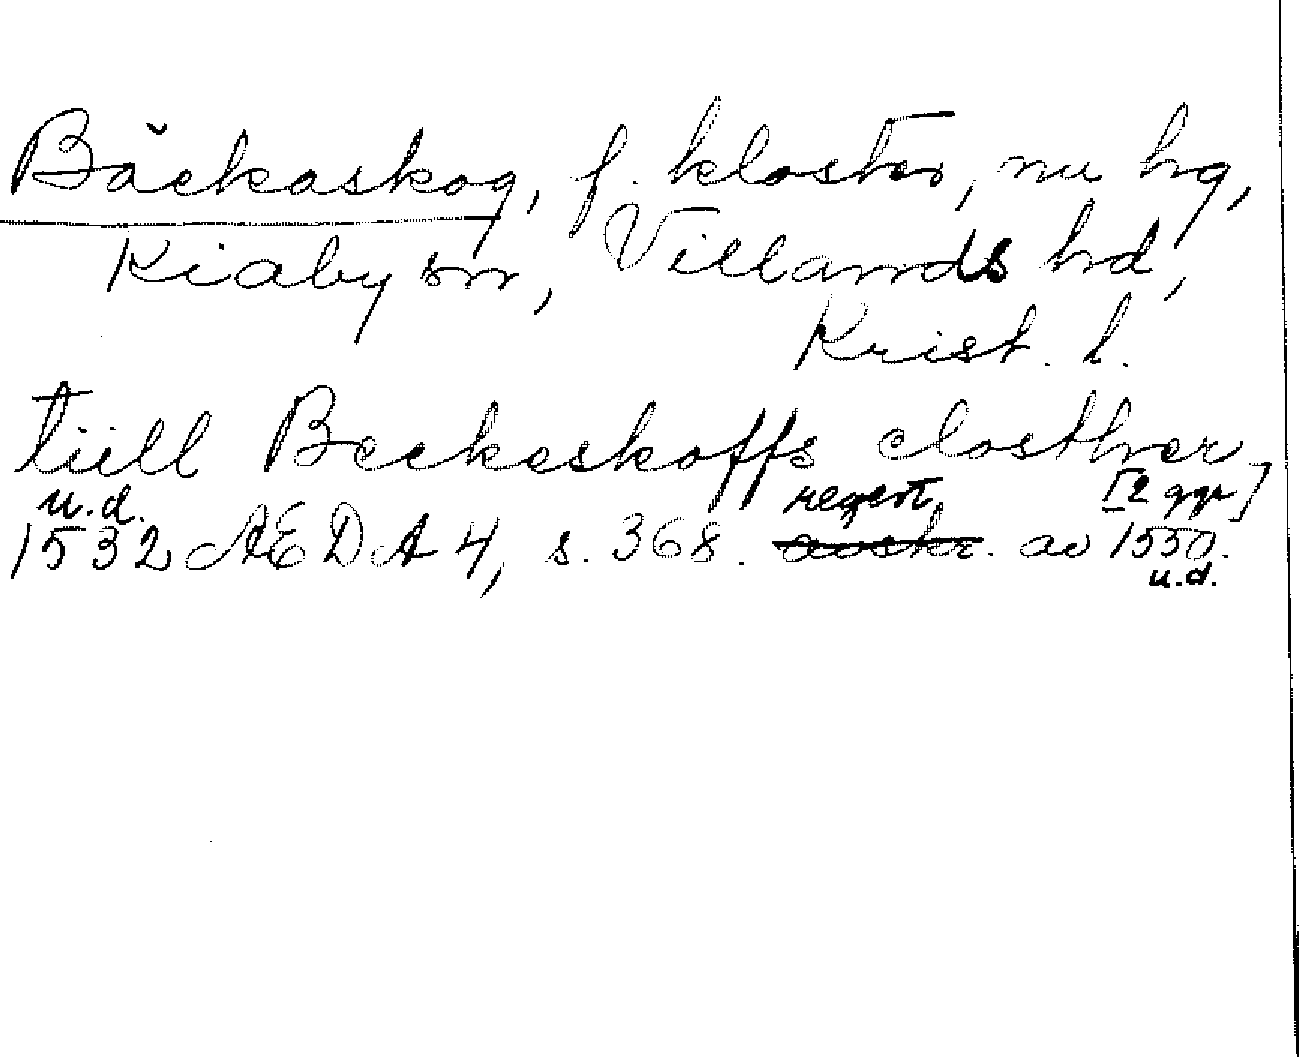 Bäckaskog, f. kloster, nu hg,
Kiaby sn, Villands hd,
Krist. l.
tiill Beckeskoffs closthrer
u.d. regest, [2 ggr]
1532 AEDA 4, s. 368. avskr. av 1550.
u.d.